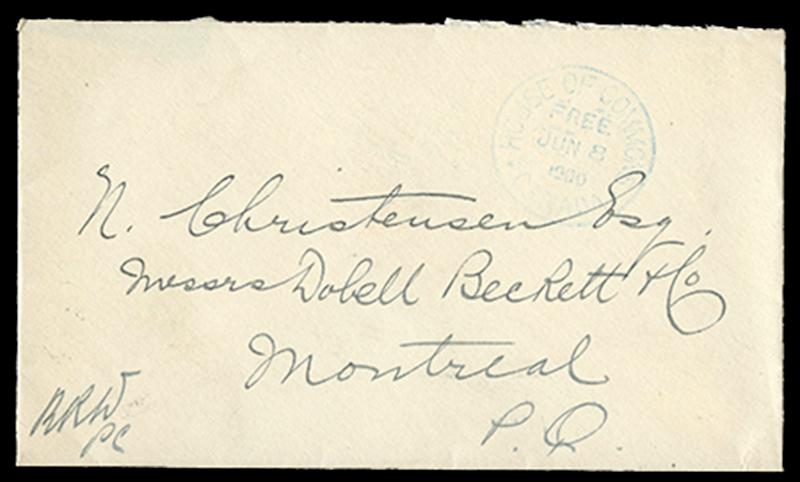 HOUSE OF COMMONS
FREE
JUN 8
1900
CANADA
N. Christensen Esq.
Messrs Dobell Beckett & Co
Montreal
P. Q.
PC